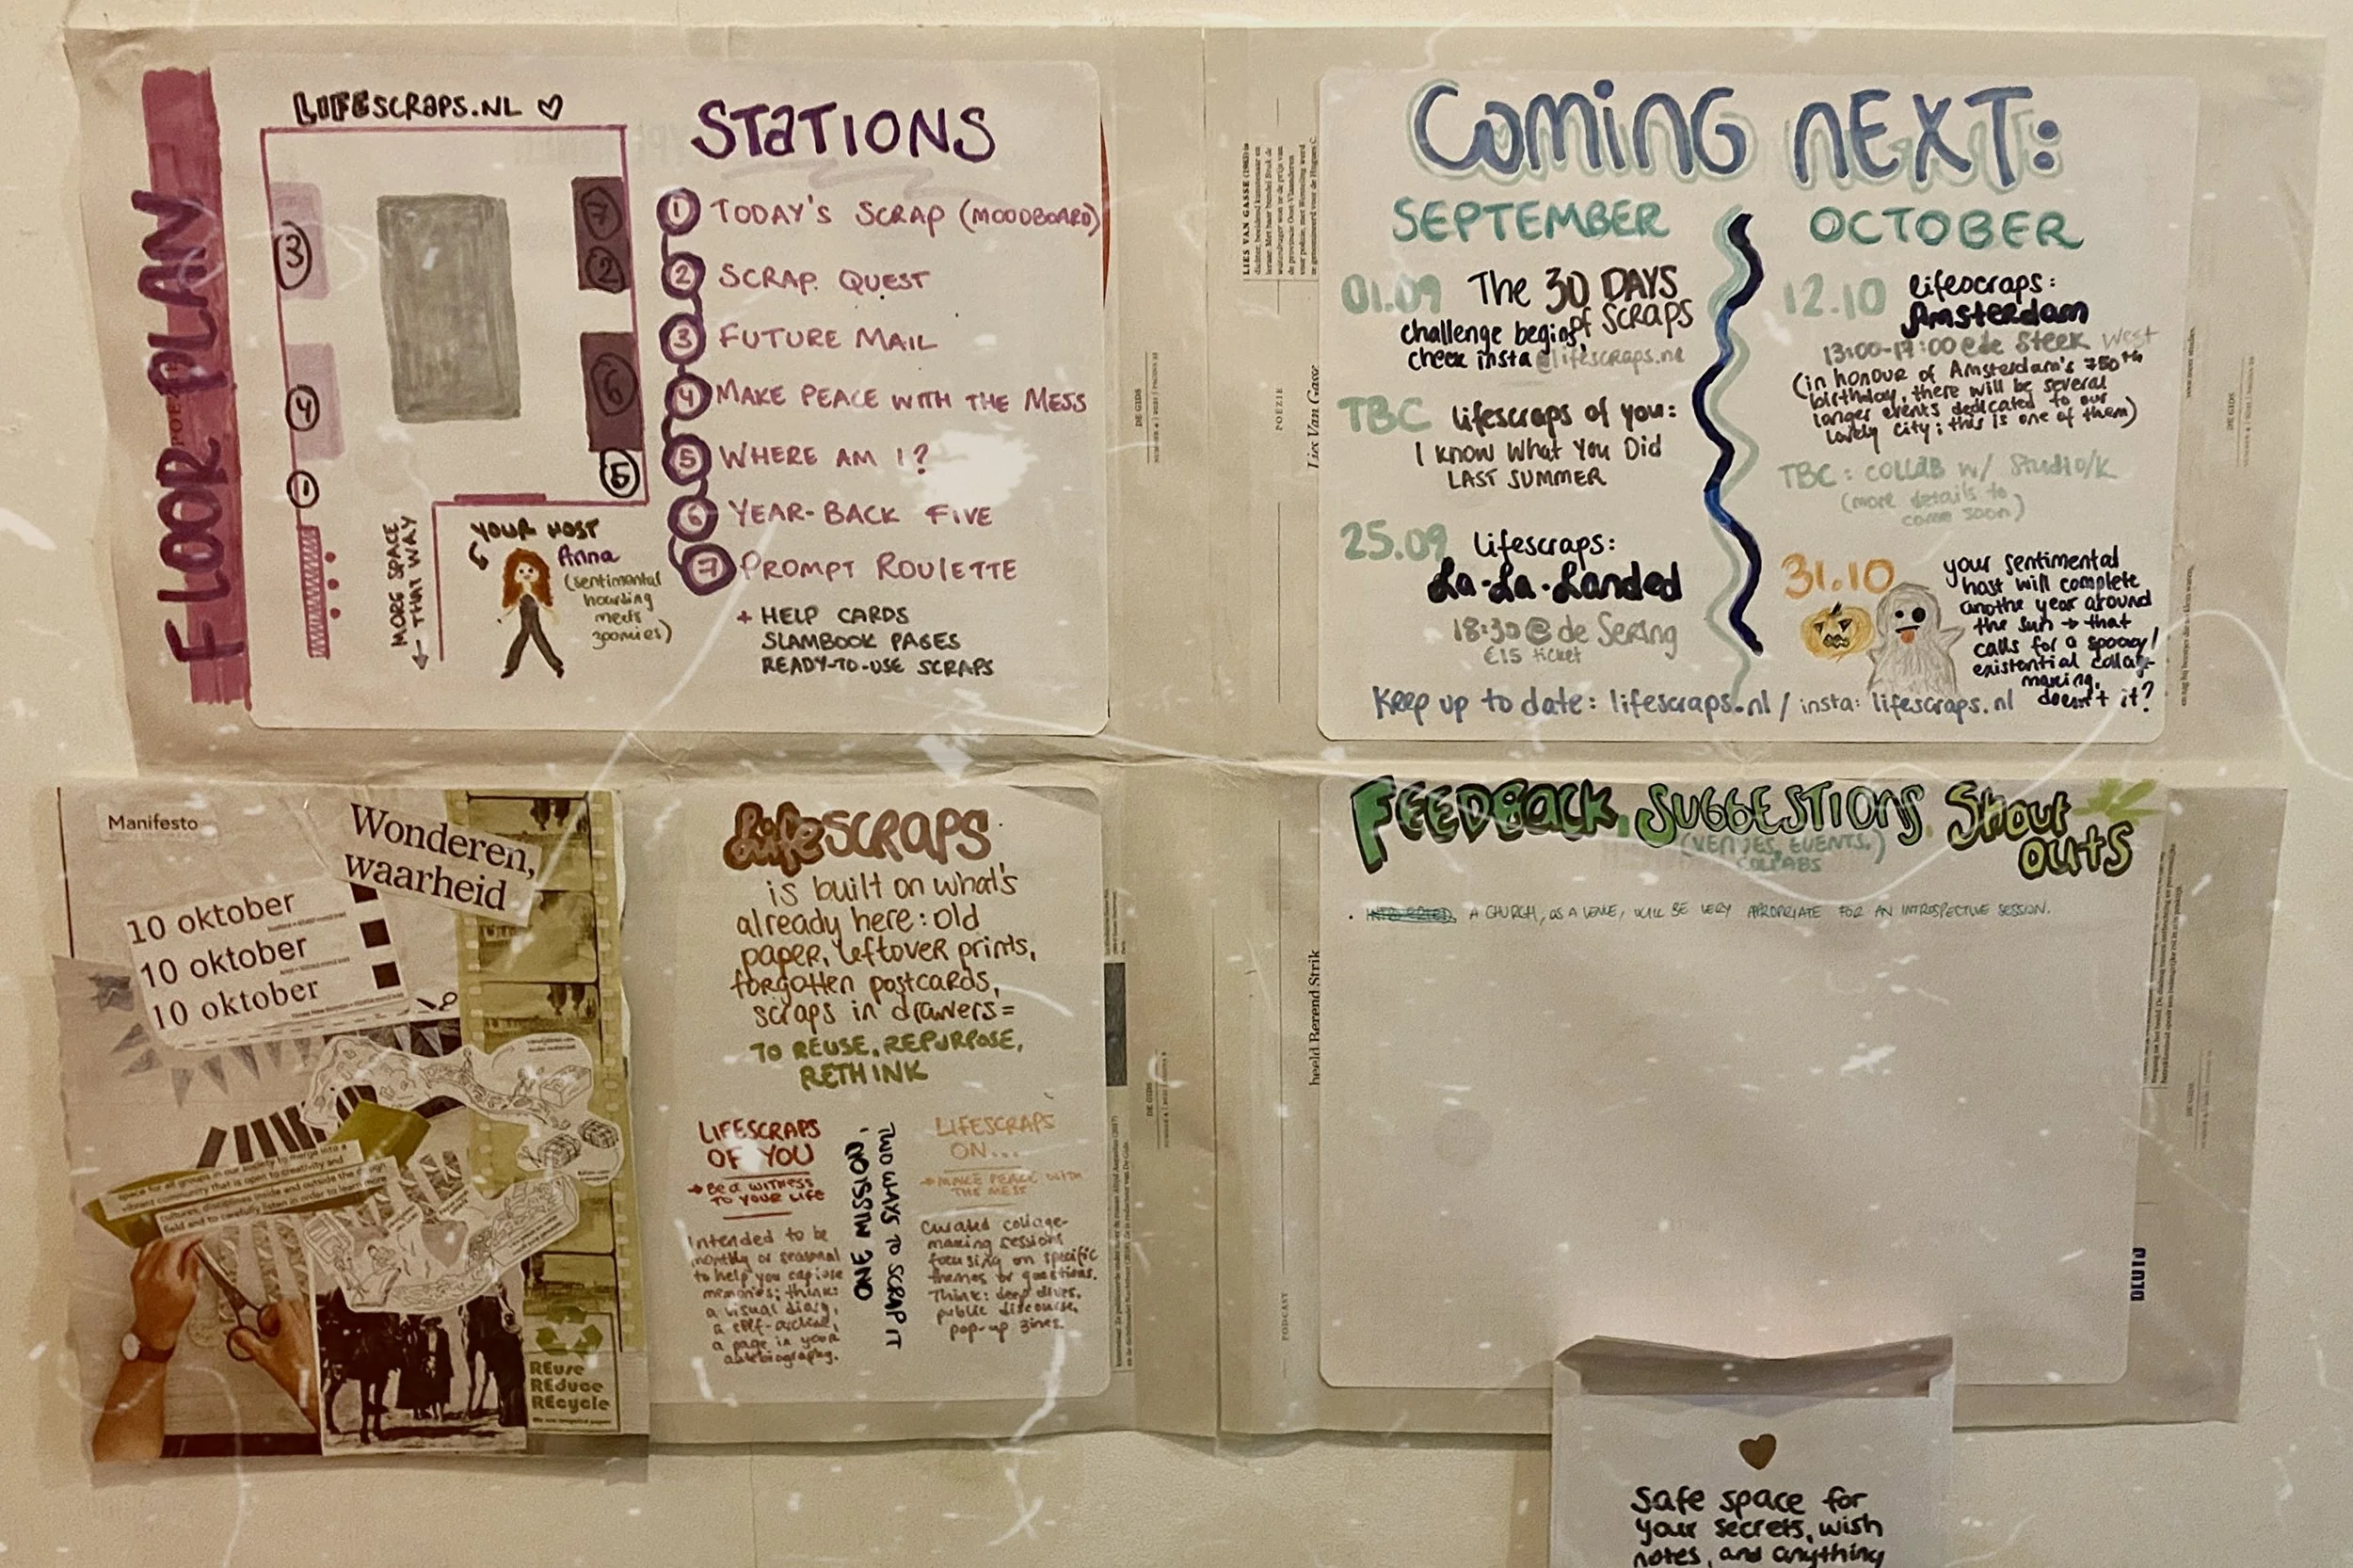 FLOOR PLAN
LIFESCRAPS.NL
3
4
1
7
2
6
5
MORE SPACE
← THAT WAY
YOUR HOST
Anna
(sentimental
hoarding
meets
zoomies)
STATIONS
1 TODAY'S SCRAP (MOODBOARD)
2 SCRAP QUEST
3 FUTURE MAIL
4 MAKE PEACE WITH THE MESS
5 WHERE AM I?
6 YEAR-BACK FIVE
7 PROMPT ROULETTE
+ HELP CARDS
SLAMBOOK PAGES
READY-TO-USE SCRAPS
LIES VAN GASSE
POËZIE
Lies Van Gasse
DE GIDS
COMING NEXT:
SEPTEMBER
01.09 The 30 DAYS
of SCRAPS
challenge begins,
check insta @lifescraps.nl
TBC lifescraps of you:
I know What You Did
LAST SUMMER
25.09 lifescraps:
La-La-Landed
18:30 @ de Sering
€15 ticket
OCTOBER
12.10 lifescraps:
Amsterdam
13:00-17:00 @ de Steek West
(in honour of Amsterdam's 750th
birthday, there will be several
longer events dedicated to our
lovely city; this is one of them)
TBC: COLLAB w/ Studio/K
(more details to
come soon)
31.10 your sentimental
host will complete
anothe year around
the sun → that
calls for a spooky/
existential collage
making,
doesn't it?
Keep up to date: lifescraps.nl / insta: lifescraps.nl
DE GIDS
Manifesto
Wonderen,
waarheid
10 oktober
10 oktober
10 oktober
space for all groups in our society to merge into a
vibrant community that is open to creativity and
cultures, disciplines inside and outside the design
field and to carefully listen in order to learn more
REuse
REduce
REcycle
LifeSCRAPS
is built on what's
already here: old
paper, leftover prints,
forgotten postcards,
scraps in drawers =
TO REUSE, REPURPOSE,
RETHINK
LIFESCRAPS
OF YOU
→ Be a WITNESS
TO YOUR LIFE
Intended to be
monthly or seasonal
to help you capture
memories; think:
a visual diary,
a self-archive,
a page in your
autobiography.
TWO WAYS TO SCRAP IT,
ONE MISSION
LIFESCRAPS
ON...
→ MAKE PEACE WITH
THE MESS
Curated collage-
making sessions
focusing on specific
themes or questions.
Think: deep dives,
public discourse,
pop-up zines.
DE GIDS
beeld Berend Strik
PODCAST
FEEDBACK, SUGGESTIONS, Shout
outs
(VENUES, EVENTS,
COLLABS)
A CHURCH, AS A VENUE, WILL BE VERY APROPRIATE FOR AN INTROSPECTIVE SESSION.
DE GIDS
Safe space for
your secrets, wish
notes, and anything